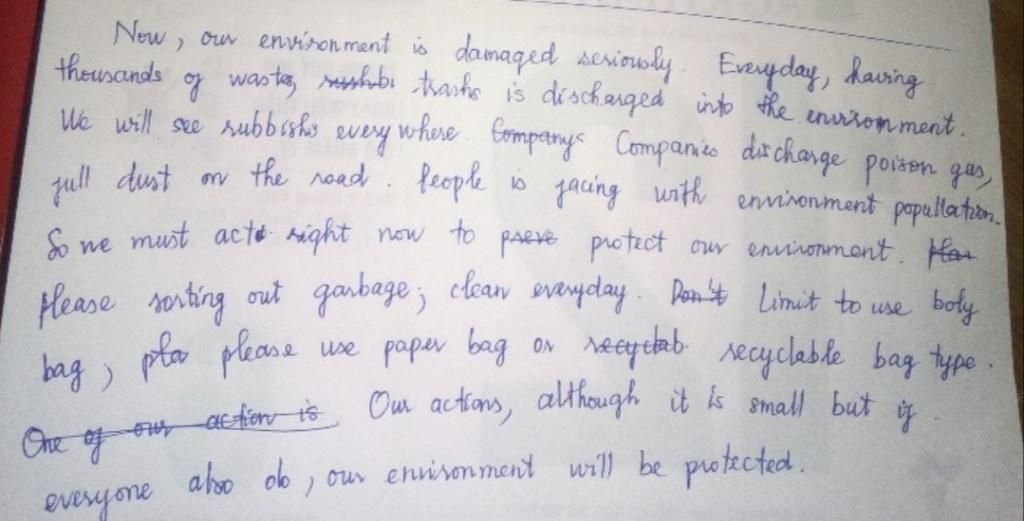 Now, our environment is damaged seriously. Everyday, having
thousands of waste, trashs is discharged into the environment.
We will see rubbishs everywhere. Companys Companies discharge poison gas,
full dust on the road. People is facing with environment popullation.
So we must act right now to preve protect our environment. plea
please sorting out garbage; clean everyday. Don't Limit to use boly
bag, plea please use paper bag or recyclab recyclable bag type.
One of our action is Our actions, although it is small but if
everyone also do, our environment will be protected.